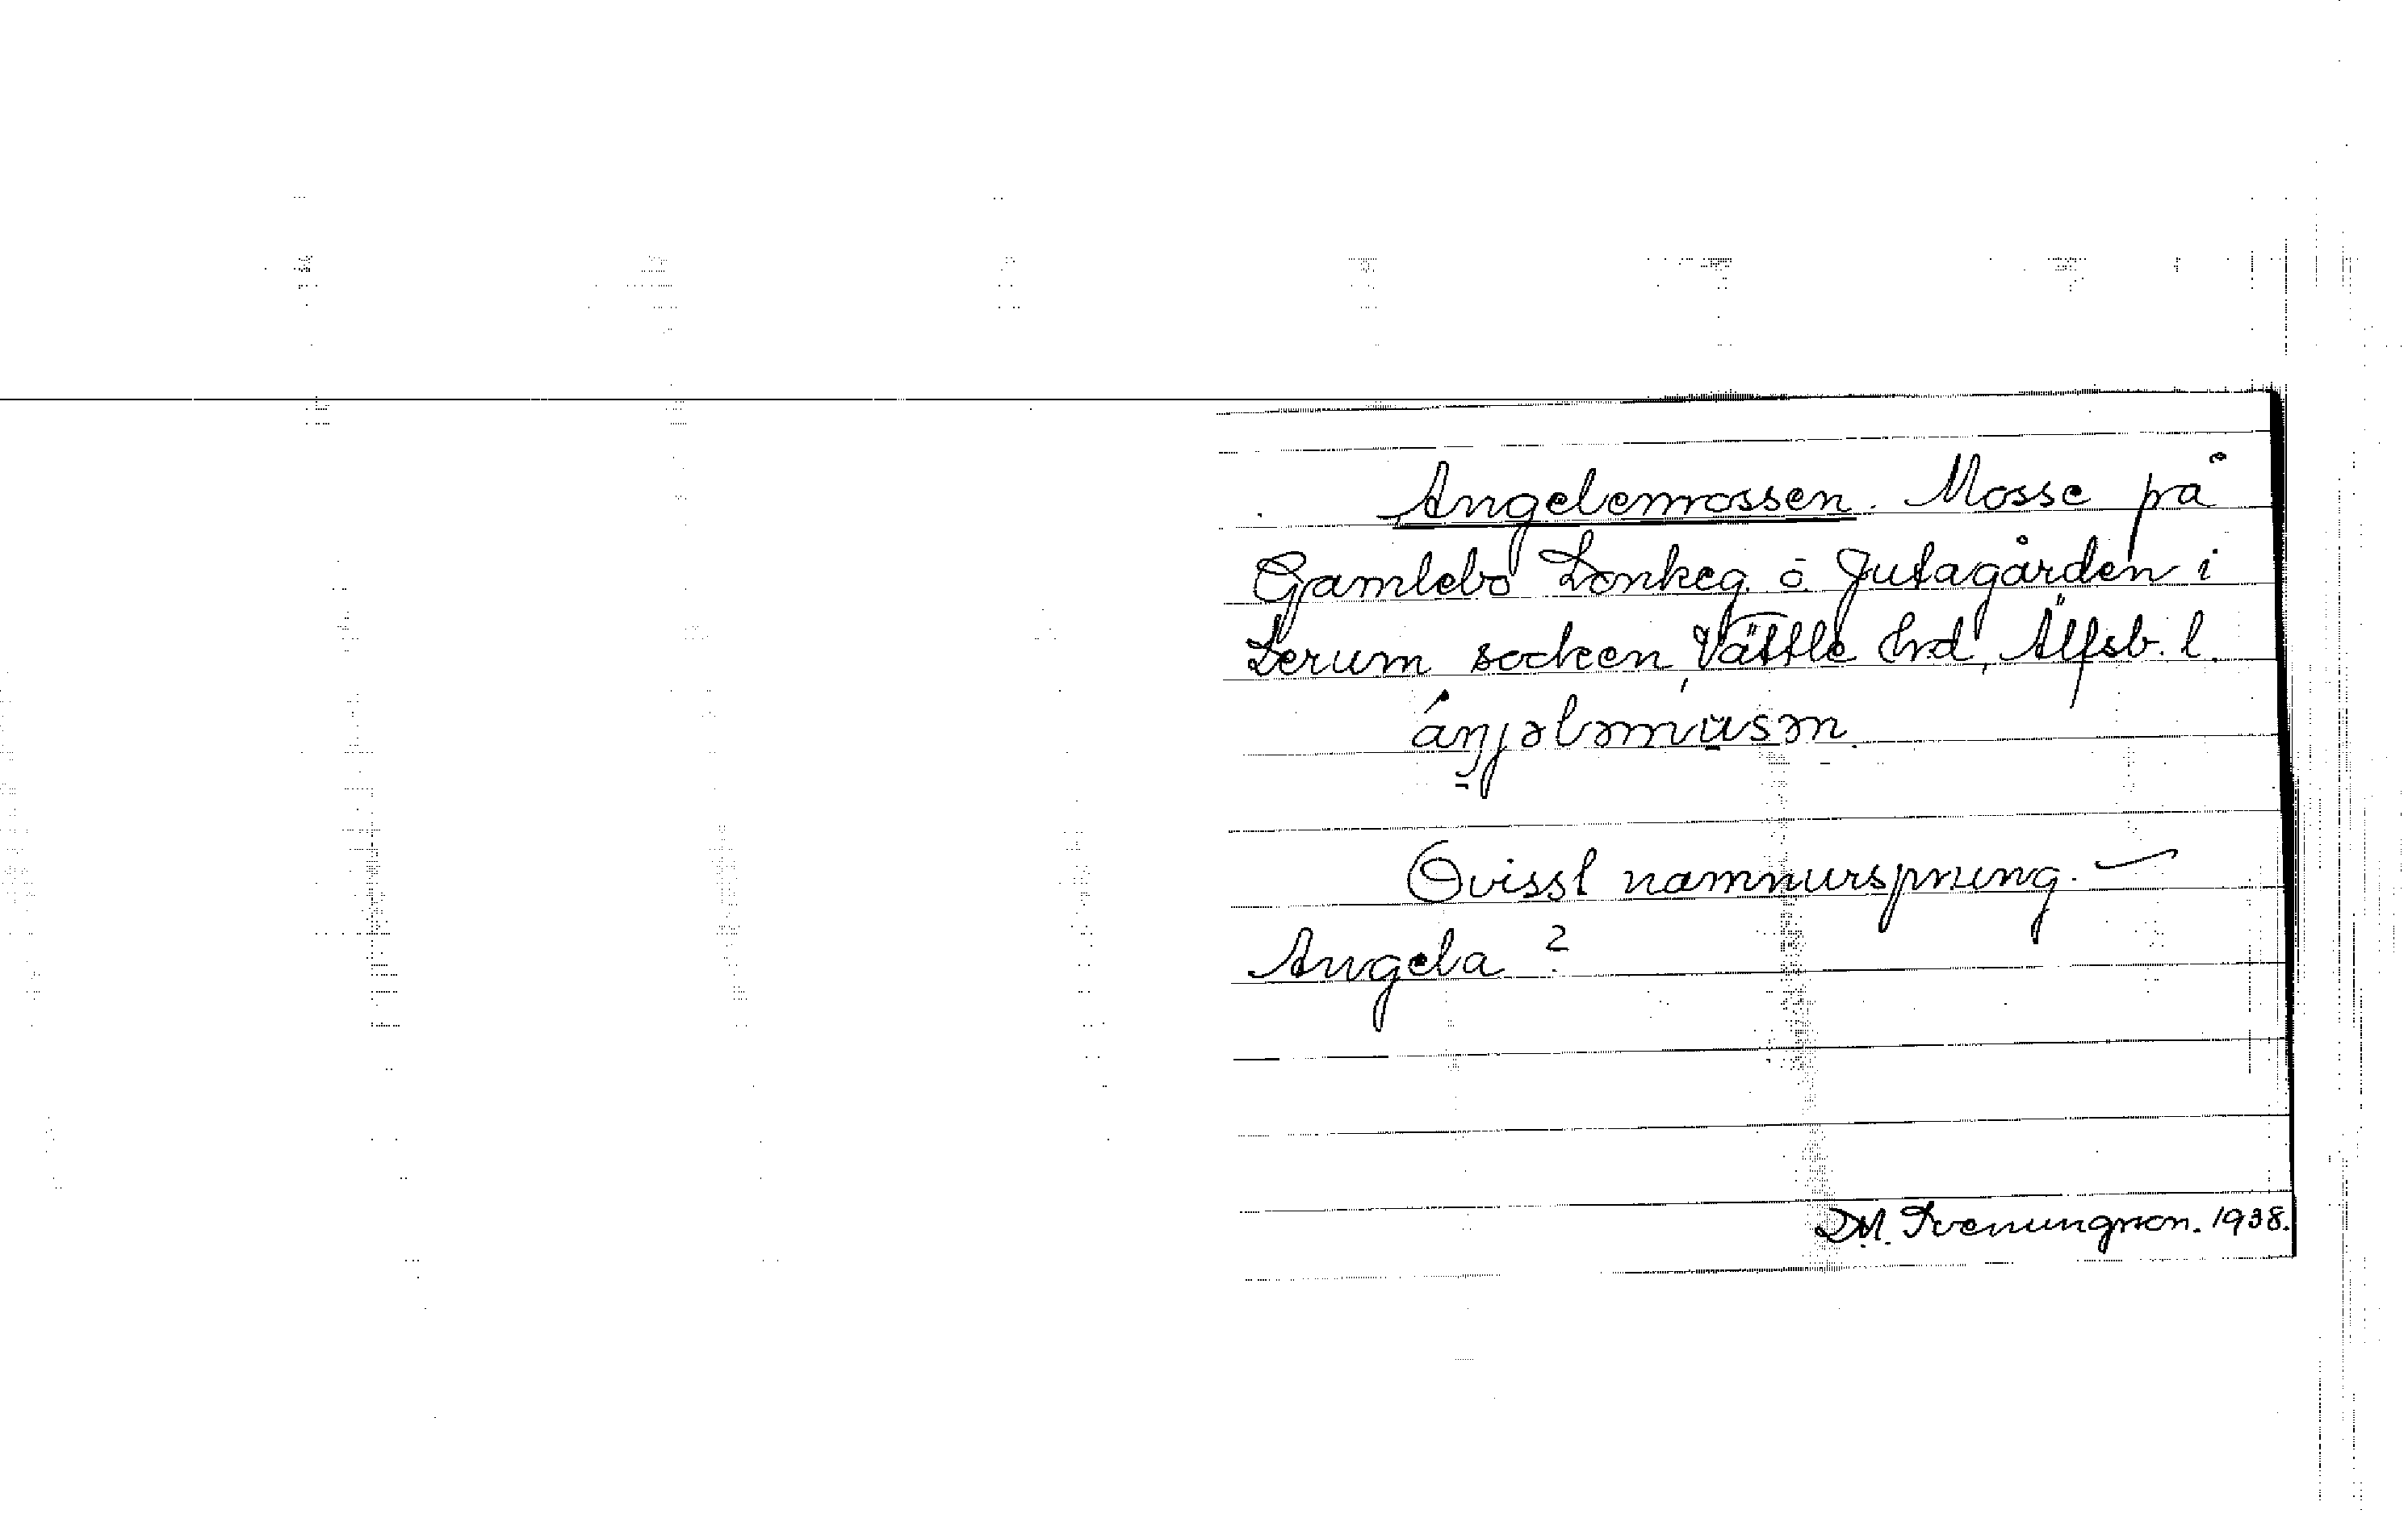 Angelemossen. Mosse på
Gamlebo Lonkeg. o. Jutagården i
Lerum socken, Vättle hrd, Älfsb. l.
áŋjələmùsən.
Ovisst namnursprung. —
Angela?
D.M. Svenungsson. 1938.